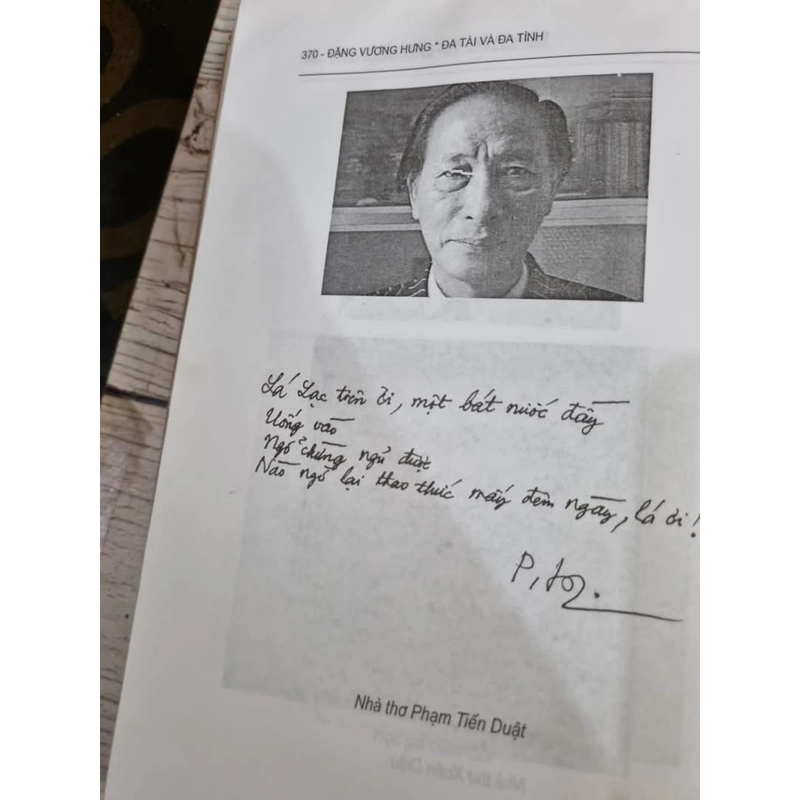 370 - ĐẶNG VƯƠNG HƯNG * ĐA TÀI VÀ ĐA TÌNH
Lá Lạc tiên ơi, một bát nước đầy
Uống vào
Ngỡ chừng ngủ được
Nào ngờ lại thao thức mấy đêm ngày, lá ơi!
Nhà thơ Phạm Tiến Duật
Nhà thơ Xuân Diệu